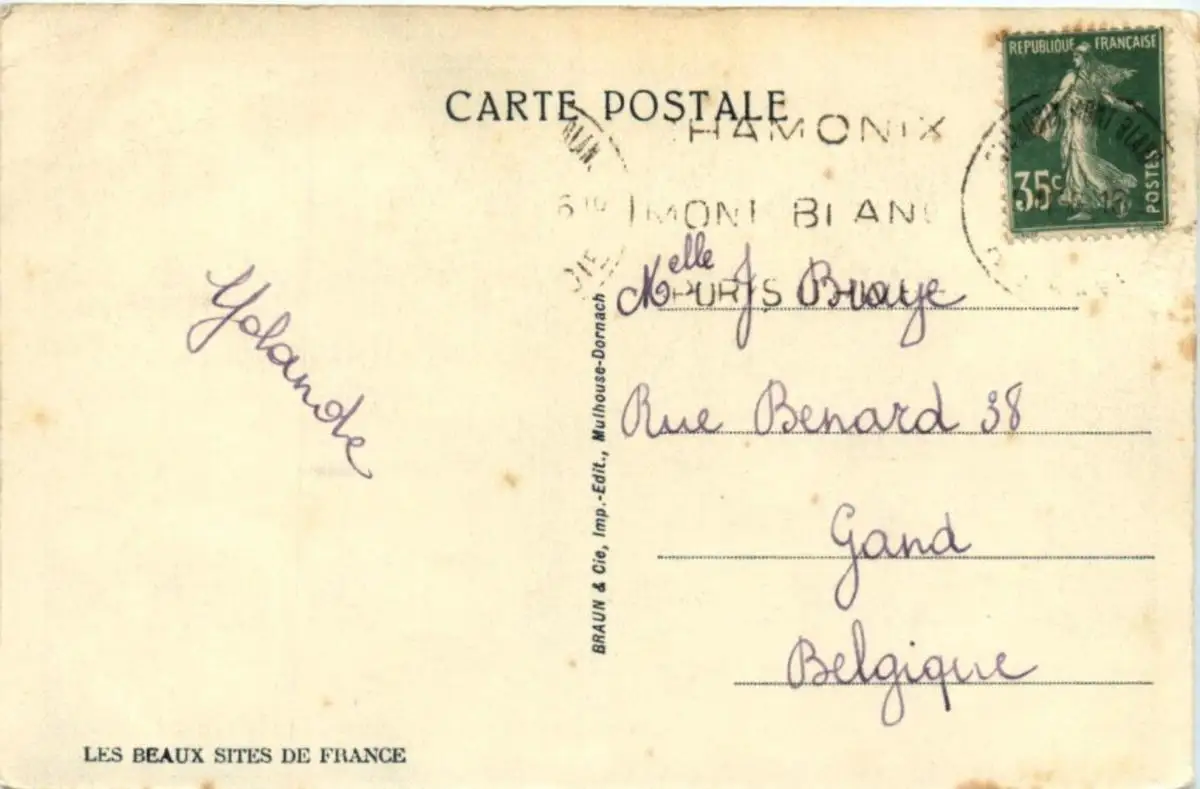 CARTE POSTALE
REPUBLIQUE FRANÇAISE
35c
POSTES
HAMONIX
MONT BLANC
Melle J Braye
Rue Benard 38
Gand
Belgique
Yolande
BRAUN & Cie, Imp.-Edit., Mulhouse-Dornach
LES BEAUX SITES DE FRANCE